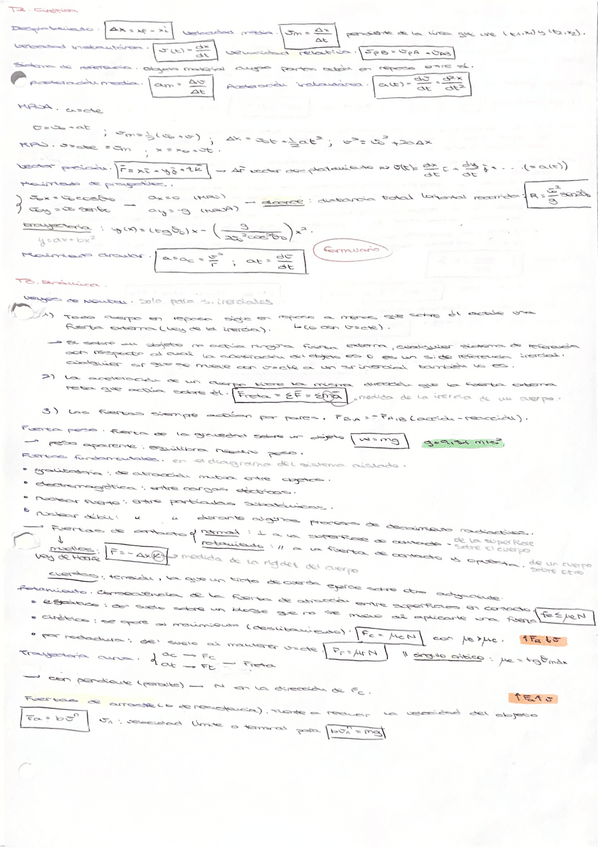 Desplazamiento: Δx = xf - xi Velocidad media: vm = Δx/Δt pendiente de la línea que une (t1,x1) y (t2,x2).
Velocidad instantánea: v(t) = dx/dt Velocidad relativa: vpB = vpA + vAB
Sistema de referencia: material cuyas partes están en reposo
Aceleración media: am = Δv/Δt Aceleración instantánea: a(t) = dv/dt = d²x/dt²
MRUA. a=cte
v = v0 + at ; vm = ½(v0+v) ; Δx = v0t + ½at² ; v² = v0² + 2aΔx
MRU. v=cte = vm ; x = x0 + vt.
Vector posición: r = xi + yj + zk → Δr vector desplazamiento v(t) = dx/dt i + dy/dt j + ... (= a(t))
Movimiento de proyectiles.
v0x = v0 cosθ0 — ax = 0 (MRU)
v0y = v0 senθ0 — ay = -g (MRUA) → alcance: distancia total horizontal recorrida: R = v0²/g sen2θ0
trayectoria: y(x) = (tgθ0)x - (g / 2v0²cos²θ0) x².
y = ax + bx²
Formulario
Movimiento circular. a = ac = v²/r ; at = dv/dt
Leyes de Newton. Solo para s. inerciales
1) Todo cuerpo en reposo sigue en reposo a menos que sobre él actúe una
fuerza externa (Ley de la inercia). (o con v=cte).
→ Si sobre un objeto no actúa ninguna fuerza externa, cualquier sistema de referencia
con respecto al cual la aceleración del objeto es 0 es un s. de referencia inercial.
cualquier sr que se mueve con v=cte a un sr inercial también lo es.
2) La aceleración de un cuerpo tiene la misma dirección que la fuerza externa
neta que actúa sobre él. Fneta = ΣF = Σma medida de la inercia de un cuerpo.
3) Las fuerzas siempre actúan por pares. (acción-reacción).
Fuerza peso: fuerza de la gravedad sobre un objeto w = mg g = 9,81 m/s²
→ peso aparente: equilibra nuestro peso.
Fuerzas fundamentales. en el diagrama del sistema aislado.
• gravitatoria: de atracción mutua entre objetos.
• electromagnética: entre cargas eléctricas.
• Nuclear fuerte: entre partículas subatómicas.
• Nuclear débil: " " durante algunos procesos de decaimiento radiactivos.
→ Fuerzas de contacto normal: ⊥ a la superficie de contacto. de la superficie sobre el cuerpo
rozamiento: // a la fuerza de contacto y opuesta. de un cuerpo sobre otro
muelles: Ley de Hooke F = -Δx K medida de la rigidez del cuerpo
cuerdas: tensión, la que un trozo de cuerda ejerce sobre otro adyacente.
Rozamiento. Consecuencia de la fuerza de atracción entre superficies en contacto.
• estático: del suelo sobre un bloque que no se mueve al aplicarle una fuerza fe ≤ μeN
• cinético: se opone al movimiento (deslizamiento). Fc = μcN con μe > μc.
• por rodadura: del suelo al mantener v=cte Fr = μrN ángulo crítico: μe = tgθmáx
Trayectoria curva. ac → Fc
at → Ft → Fneta
→ con pendiente (peralte) — N en la dirección de Fc.
Fuerzas de arrastre (o de resistencia), tiende a reducir la velocidad del objeto
Fa = bvⁿ : velocidad límite o terminal para = mg